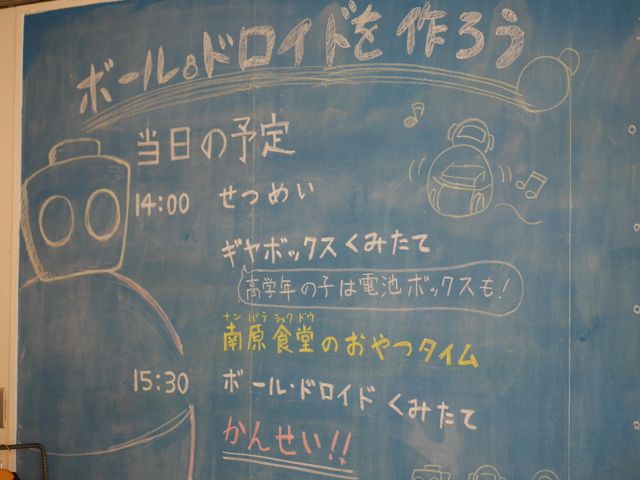 ボール&ドロイドを作ろう
当日の予定
14:00 せつめい
ギヤボックスくみたて
高学年の子は電池ボックスも!
ナンバラショクドウ
南原食堂のおやつタイム
15:30 ボール・ドロイドくみたて
かんせい!!